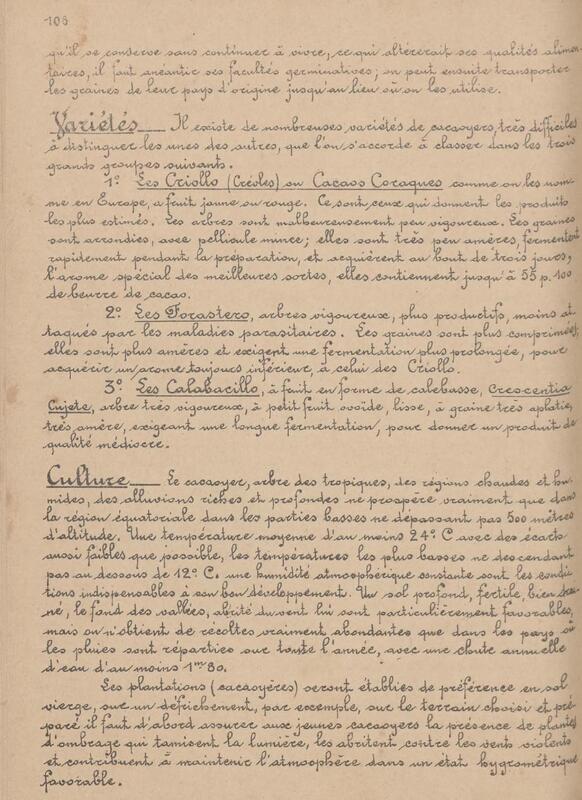 106
qu'il se conserve sans continuer à vivre, ce qui altérerait ses qualités alimen-
taires, il faut anéantir ses facultés germinatives; on peut ensuite transporter
les graines de leur pays d'origine jusqu'au lieu où on les utilise.
Variétés — Il existe de nombreuses variétés de cacaoyers, très difficiles
à distinguer les unes des autres, que l'on s'accorde à classer dans les trois
grands groupes suivants.
1º Les Criollo (Créoles) ou Cacaos Caraques comme on les nom-
me en Europe, a fruit jaune ou rouge. Ce sont ceux qui donnent les produits
les plus estimés. Les arbres sont malheureusement peu vigoureux. Les graines
sont arrondies, avec pellicule mince; elles sont très peu amères, fermentent
rapidement pendant la préparation, et acquièrent au bout de trois jours,
l'arome spécial des meilleures sortes, elles contiennent jusqu'à 55 p. 100
de beurre de cacao.
2º Les Forastero, arbres vigoureux, plus productifs, moins at
taqués par les maladies parasitaires. Les graines sont plus comprimées,
elles sont plus amères et exigent une fermentation plus prolongée, pour
acquérir un arome toujours inférieur, à celui des Criollo.
3º Les Calabacillo, à fruit en forme de calebasse, Crescentia
Cujete, arbre très vigoureux, à petit fruit ovoïde, lisse, à graine très aplatie,
très amère, exigeant une longue fermentation, pour donner un produit de
qualité médiocre.
Culture — Le cacaoyer, arbre des tropiques, des régions chaudes et hu-
mides, des alluvions riches et profondes ne prospère vraiment que dans
la région équatoriale dans les parties basses ne dépassant pas 500 mètres
d'altitude. Une température moyenne d'au moins 24º C avec des écarts
aussi faibles que possible, les températures les plus basses ne descendant
pas au dessous de 12º C. une humidité atmosphérique constante sont les condi
tions indispensables à son bon développement. Un sol profond, fertile, bien drai-
né, le fond des vallées, abrité du vent lui sont particulièrement favorables,
mais on n'obtient de récoltes vraiment abondantes que dans les pays où
les pluies sont réparties sur toute l'année, avec une chute annuelle
d'eau d'au moins 1m80.
Les plantations (cacaoyères) seront établies de préférence en sol
vierge, sur un défrichement, par exemple, sur le terrain choisi et pré-
paré il faut d'abord assurer aux jeunes cacaoyers la présence de plantes
d'ombrage qui tamisent la lumière, les abritent contre les vents violents
et contribuent à maintenir l'atmosphère dans un état hygrométrique
favorable.